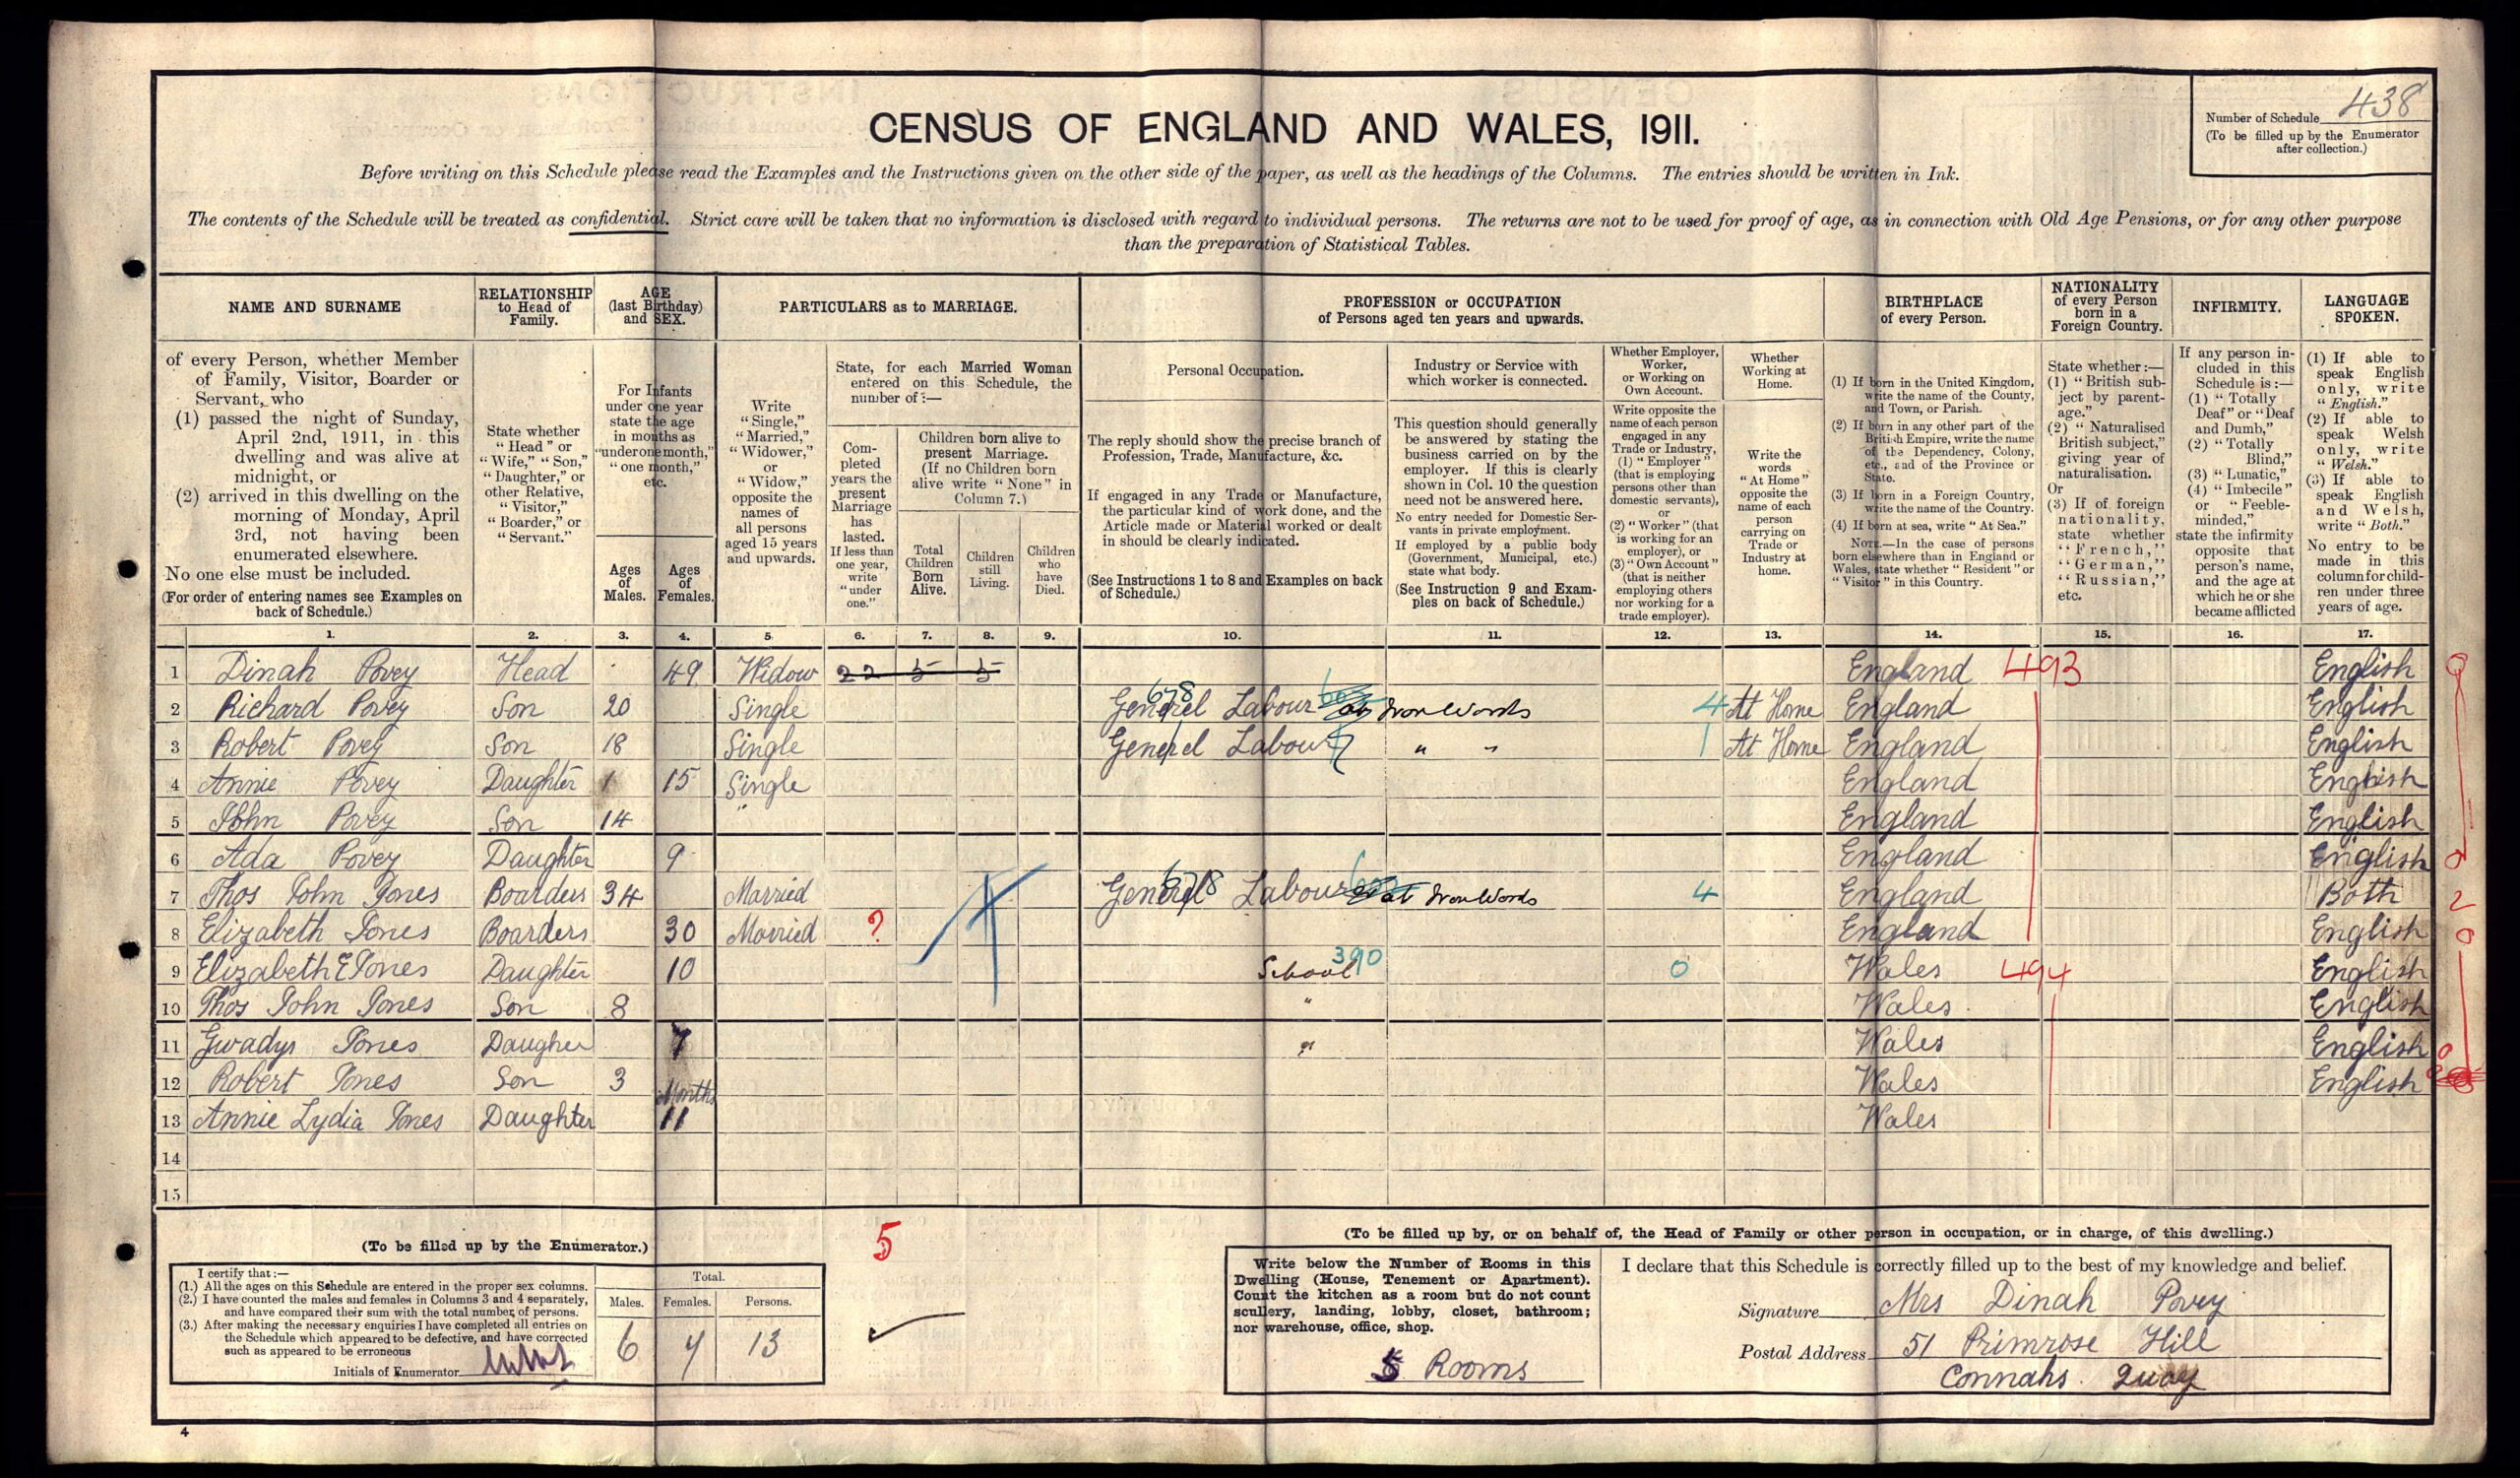 Number of Schedule 438
(To be filled up by the Enumerator
after collection.)
CENSUS OF ENGLAND AND WALES, 1911.
Before writing on this Schedule please read the Examples and the Instructions given on the other side of the paper, as well as the headings of the Columns. The entries should be written in Ink.
The contents of the Schedule will be treated as confidential. Strict care will be taken that no information is disclosed with regard to individual persons. The returns are not to be used for proof of age, as in connection with Old Age Pensions, or for any other purpose
than the preparation of Statistical Tables.
NAME AND SURNAME
of every Person, whether Member
of Family, Visitor, Boarder or
Servant, who
(1) passed the night of Sunday,
April 2nd, 1911, in this
dwelling and was alive at
midnight, or
(2) arrived in this dwelling on the
morning of Monday, April
3rd, not having been
enumerated elsewhere.
No one else must be included.
(For order of entering names see Examples on
back of Schedule.)
RELATIONSHIP
to Head of
Family.
State whether
"Head," or
"Wife," "Son,"
"Daughter," or
other Relative,
"Visitor,"
"Boarder," or
"Servant."
AGE
(last Birthday)
and SEX.
For Infants
under one year
state the age
in months as
"under one month,"
"one month,"
etc.
Ages
of
Males.
Ages
of
Females.
PARTICULARS as to MARRIAGE.
Write
"Single,"
"Married,"
"Widower,"
or
"Widow,"
opposite the
names of
all persons
aged 15 years
and upwards.
State, for each Married Woman
entered on this Schedule, the
number of :—
Com-
pleted
years the
present
Marriage
has
lasted.
If less than
one year,
write
"under
one."
Children born alive to
present Marriage.
(If no Children born
alive write "None" in
Column 7.)
Total
Children
Born
Alive.
Children
still
Living.
Children
who
have
Died.
PROFESSION or OCCUPATION
of Persons aged ten years and upwards.
Personal Occupation.
The reply should show the precise branch of
Profession, Trade, Manufacture, &c.
If engaged in any Trade or Manufacture,
the particular kind of work done, and the
Article made or Material worked or dealt
in should be clearly indicated.
(See Instructions 1 to 8 and Examples on back
of Schedule.)
Industry or Service with
which worker is connected.
This question should generally
be answered by stating the
business carried on by the
employer. If this is clearly
shown in Col. 10 the question
need not be answered here.
No entry needed for Domestic Ser-
vants in private employment.
If employed by a public body
(Government, Municipal, etc.)
state what body.
(See Instruction 9 and Exam-
ples on back of Schedule.)
Whether Employer,
Worker,
or Working on
Own Account.
Write opposite the
name of each person
engaged in any
Trade or Industry,
(1) "Employer"
(that is employing
persons other than
domestic servants),
or
(2) "Worker" (that
is working for an
employer), or
(3) "Own Account"
(that is neither
employing others
nor working for a
trade employer).
Whether
Working at
Home.
Write the
words
"At Home"
opposite the
name of each
person
carrying on
Trade or
Industry at
home.
BIRTHPLACE
of every Person.
(1) If born in the United Kingdom,
write the name of the County,
and Town, or Parish.
(2) If born in any other part of the
British Empire, write the name
of the Dependency, Colony,
etc., and of the Province or
State.
(3) If born in a Foreign Country,
write the name of the Country.
(4) If born at sea, write "At Sea."
NOTE.—In the case of persons
born elsewhere than in England or
Wales, state whether "Resident" or
"Visitor" in this Country.
NATIONALITY
of every Person
born in a
Foreign Country.
State whether :—
(1) "British sub-
ject by parent-
age."
(2) "Naturalised
British subject,"
giving year of
naturalisation.
Or
(3) If of foreign
nationality,
state whether
"French,"
"German,"
"Russian,"
etc.
INFIRMITY.
If any person in-
cluded in this
Schedule is :—
(1) "Totally
Deaf" or "Deaf
and Dumb,"
(2) "Totally
Blind,"
(3) "Lunatic,"
(4) "Imbecile"
or "Feeble-
minded,"
state the infirmity
opposite that
person's name,
and the age at
which he or she
became afflicted
LANGUAGE
SPOKEN.
(1) If able to
speak English
only, write
"English."
(2) If able to
speak Welsh
only, write
"Welsh."
(3) If able to
speak English
and Welsh,
write "Both."
No entry to be
made in this
column for child-
ren under three
years of age.
1. 2. 3. 4. 5 6. 7. 8. 9. 10. 11. 12. 13. 14. 15. 16. 17.
1 Dinah Povey Head 49 Widow 22 5 5 England 493 English
2 Richard Povey Son 20 Single Generel Labour 678 at Iron Works 4 At Home England English
3 Robert Povey Son 18 Single Generel Labour " " At Home England English
4 Annie Povey Daughter 15 Single England English
5 John Povey Son 14 " England English
6 Ada Povey Daughter 9 England English
7 Thos John Jones Boarders 34 Married General Labour 678 at Iron Works 4 England Both 2
8 Elizabeth Jones Boarders 30 Married ? England English 0
9 Elizabeth E Jones Daughter 10 School 390 0 Wales 494 English
10 Thos John Jones Son 8 " Wales English
11 Gwadys Jones Daugher 7 " Wales English
12 Robert Jones Son 3 Wales English
13 Annie Lydia Jones Daughter Months 11 Wales
14
15
5
(To be filled up by the Enumerator.)
I certify that :—
(1.) All the ages on this Schedule are entered in the proper sex columns.
(2.) I have counted the males and females in Columns 3 and 4 separately,
and have compared their sum with the total number of persons.
(3.) After making the necessary enquiries I have completed all entries on
the Schedule which appeared to be defective, and have corrected
such as appeared to be erroneous
Initials of Enumerator
Total.
Males. Females. Persons.
6 7 13
(To be filled up by, or on behalf of, the Head of Family or other person in occupation, or in charge, of this dwelling.)
Write below the Number of Rooms in this
Dwelling (House, Tenement or Apartment).
Count the kitchen as a room but do not count
scullery, landing, lobby, closet, bathroom;
nor warehouse, office, shop.
5 Rooms
I declare that this Schedule is correctly filled up to the best of my knowledge and belief.
Signature Mrs Dinah Povey
Postal Address 51 Primrose Hill
Connahs Quay
4